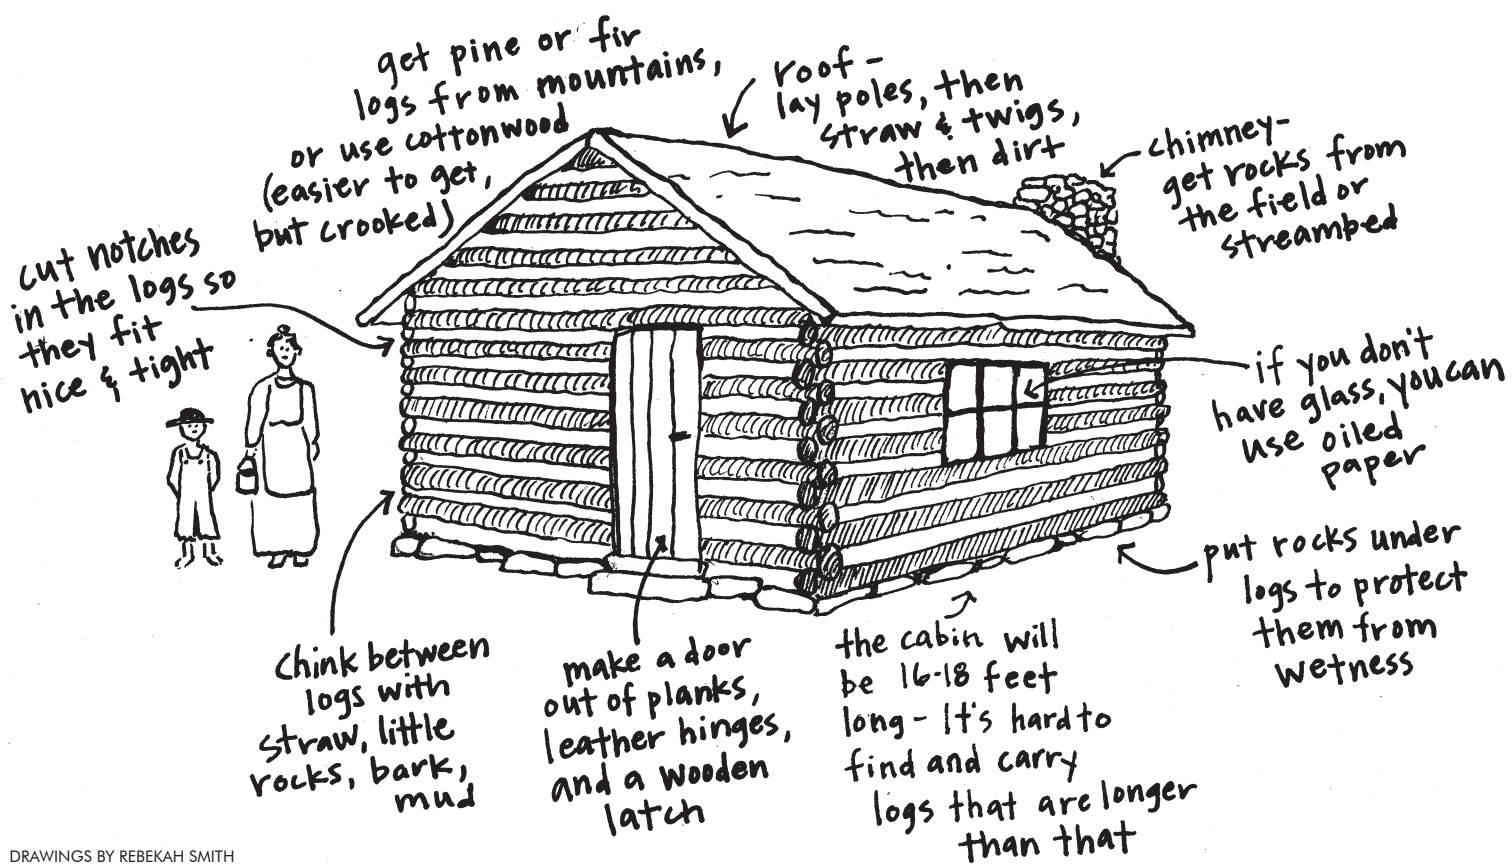 get pine or fir
logs from mountains,
or use cottonwood
(easier to get,
but crooked)
roof -
lay poles, then
straw & twigs,
then dirt
chimney-
get rocks from
the field or
streambed
cut notches
in the logs so
they fit
nice & tight
if you don't
have glass, you can
use oiled
paper
put rocks under
logs to protect
them from
wetness
chink between
logs with
straw, little
rocks, bark,
mud
make a door
out of planks,
leather hinges,
and a wooden
latch
the cabin will
be 16-18 feet
long - It's hard to
find and carry
logs that are longer
than that
DRAWINGS BY REBEKAH SMITH